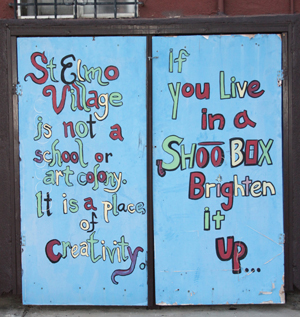 St Elmo
Village
is not a
school or
art colony.
It is a place
of
Creativity.
if
you Live
in a
SHOO BOX
Brighten
it
UP...